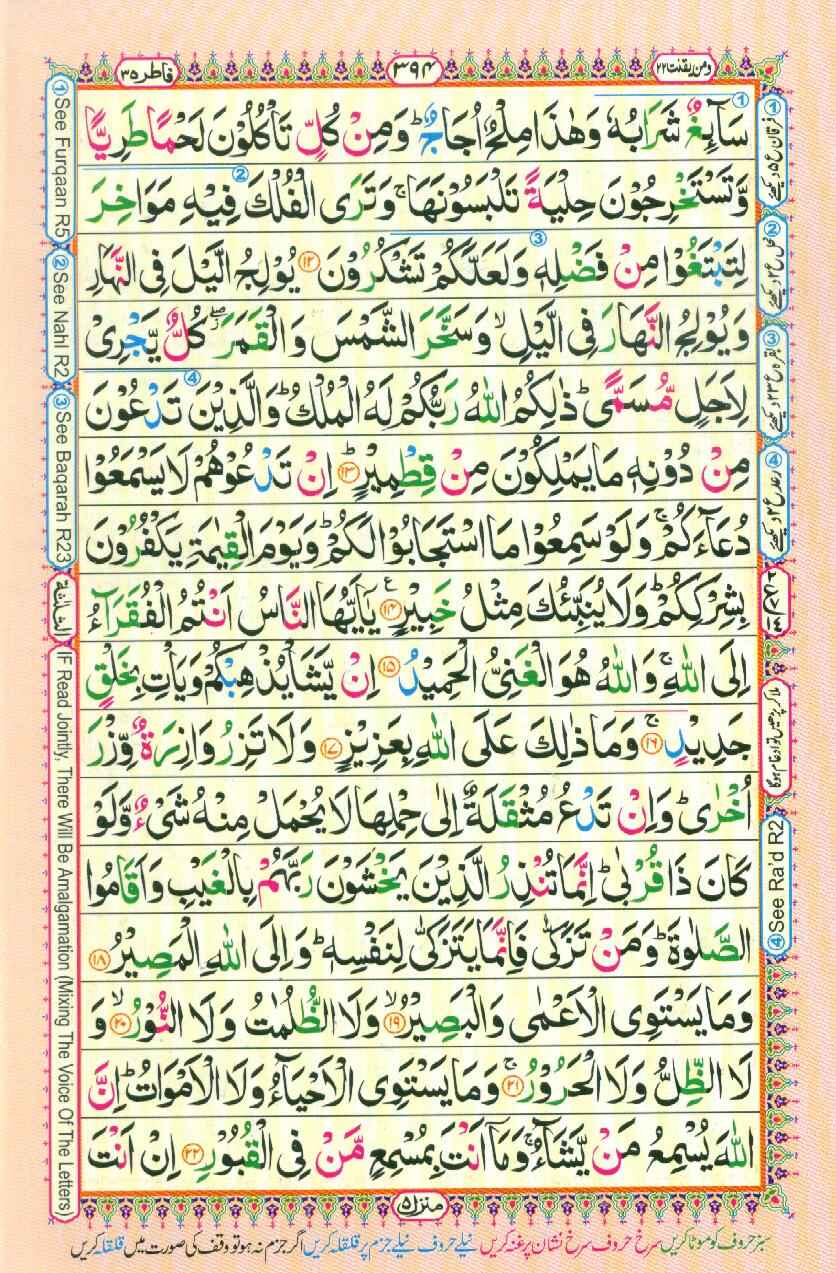 ومن يقنت ٢٢
٣٩٤
فاطر ٣٥
سَآئِغٌ شَرَابُهٗ وَهٰذَا مِلْحٌ اُجَاجٌ ؕ وَمِنْ كُلٍّ تَاْكُلُوْنَ لَحْمًا طَرِيًّا
وَّتَسْتَخْرِجُوْنَ حِلْيَةً تَلْبَسُوْنَهَا ۚ وَتَرَى الْفُلْكَ فِيْهِ مَوَاخِرَ
لِتَبْتَغُوْا مِنْ فَضْلِهٖ وَلَعَلَّكُمْ تَشْكُرُوْنَ ﴿۱۲﴾ يُوْلِجُ الَّيْلَ فِى النَّهَارِ
وَيُوْلِجُ النَّهَارَ فِى الَّيْلِ ۙ وَسَخَّرَ الشَّمْسَ وَالْقَمَرَ ۖ كُلٌّ يَّجْرِىْ
لِاَجَلٍ مُّسَمًّى ؕ ذٰلِكُمُ اللّٰهُ رَبُّكُمْ لَهُ الْمُلْكُ ؕ وَالَّذِيْنَ تَدْعُوْنَ
مِنْ دُوْنِهٖ مَا يَمْلِكُوْنَ مِنْ قِطْمِيْرٍ ؕ ﴿۱۳﴾ اِنْ تَدْعُوْهُمْ لَا يَسْمَعُوْا
دُعَآءَكُمْ ۚ وَلَوْ سَمِعُوْا مَا اسْتَجَابُوْا لَكُمْ ؕ وَيَوْمَ الْقِيٰمَةِ يَكْفُرُوْنَ
بِشِرْكِكُمْ ؕ وَلَا يُنَبِّئُكَ مِثْلُ خَبِيْرٍ ﴿۱۴﴾ يٰۤاَيُّهَا النَّاسُ اَنْتُمُ الْفُقَرَآءُ
اِلَى اللّٰهِ ۚ وَاللّٰهُ هُوَ الْغَنِىُّ الْحَمِيْدُ ﴿۱۵﴾ اِنْ يَّشَاْ يُذْهِبْكُمْ وَيَاْتِ بِخَلْقٍ
جَدِيْدٍ ۚ ﴿۱۶﴾ وَمَا ذٰلِكَ عَلَى اللّٰهِ بِعَزِيْزٍ ﴿۱۷﴾ وَلَا تَزِرُ وَازِرَةٌ وِّزْرَ
اُخْرٰى ؕ وَاِنْ تَدْعُ مُثْقَلَةٌ اِلٰى حِمْلِهَا لَا يُحْمَلْ مِنْهُ شَىْءٌ وَّلَوْ
كَانَ ذَا قُرْبٰى ؕ اِنَّمَا تُنْذِرُ الَّذِيْنَ يَخْشَوْنَ رَبَّهُمْ بِالْغَيْبِ وَاَقَامُوا
الصَّلٰوةَ ؕ وَمَنْ تَزَكّٰى فَاِنَّمَا يَتَزَكّٰى لِنَفْسِهٖ ؕ وَاِلَى اللّٰهِ الْمَصِيْرُ ﴿۱۸﴾
وَمَا يَسْتَوِى الْاَعْمٰى وَالْبَصِيْرُ ۙ ﴿۱۹﴾ وَلَا الظُّلُمٰتُ وَلَا النُّوْرُ ۙ ﴿۲۰﴾ وَ
لَا الظِّلُّ وَلَا الْحَرُوْرُ ۚ ﴿۲۱﴾ وَمَا يَسْتَوِى الْاَحْيَآءُ وَلَا الْاَمْوَاتُ ؕ اِنَّ
اللّٰهَ يُسْمِعُ مَنْ يَّشَآءُ ۚ وَمَاۤ اَنْتَ بِمُسْمِعٍ مَّنْ فِى الْقُبُوْرِ ﴿۲۲﴾ اِنْ اَنْتَ
منزل ۵
سبز حروف کو موٹا کریں سرخ حروف سرخ نشان پر غنہ کریں نیلے حروف نیلے جزم پر قلقلہ کریں اگر جزم نہ ہو تو وقف کی صورت میں قلقلہ کریں
① See Furqaan R5
② See Nahl R2
③ See Baqarah R23
الثالثة
IF Read Jointly, There Will Be Amalgamation (Mixing The Voice Of The Letters)
① فرقان ع ۵ دیکھئے
② نحل ع ۲ دیکھئے
③ بقرہ ع ۲۳ دیکھئے
④ رعد ع ۲ دیکھئے
ملا کر پڑھیں تو ادغام ہوگا
④ See Ra'd R2